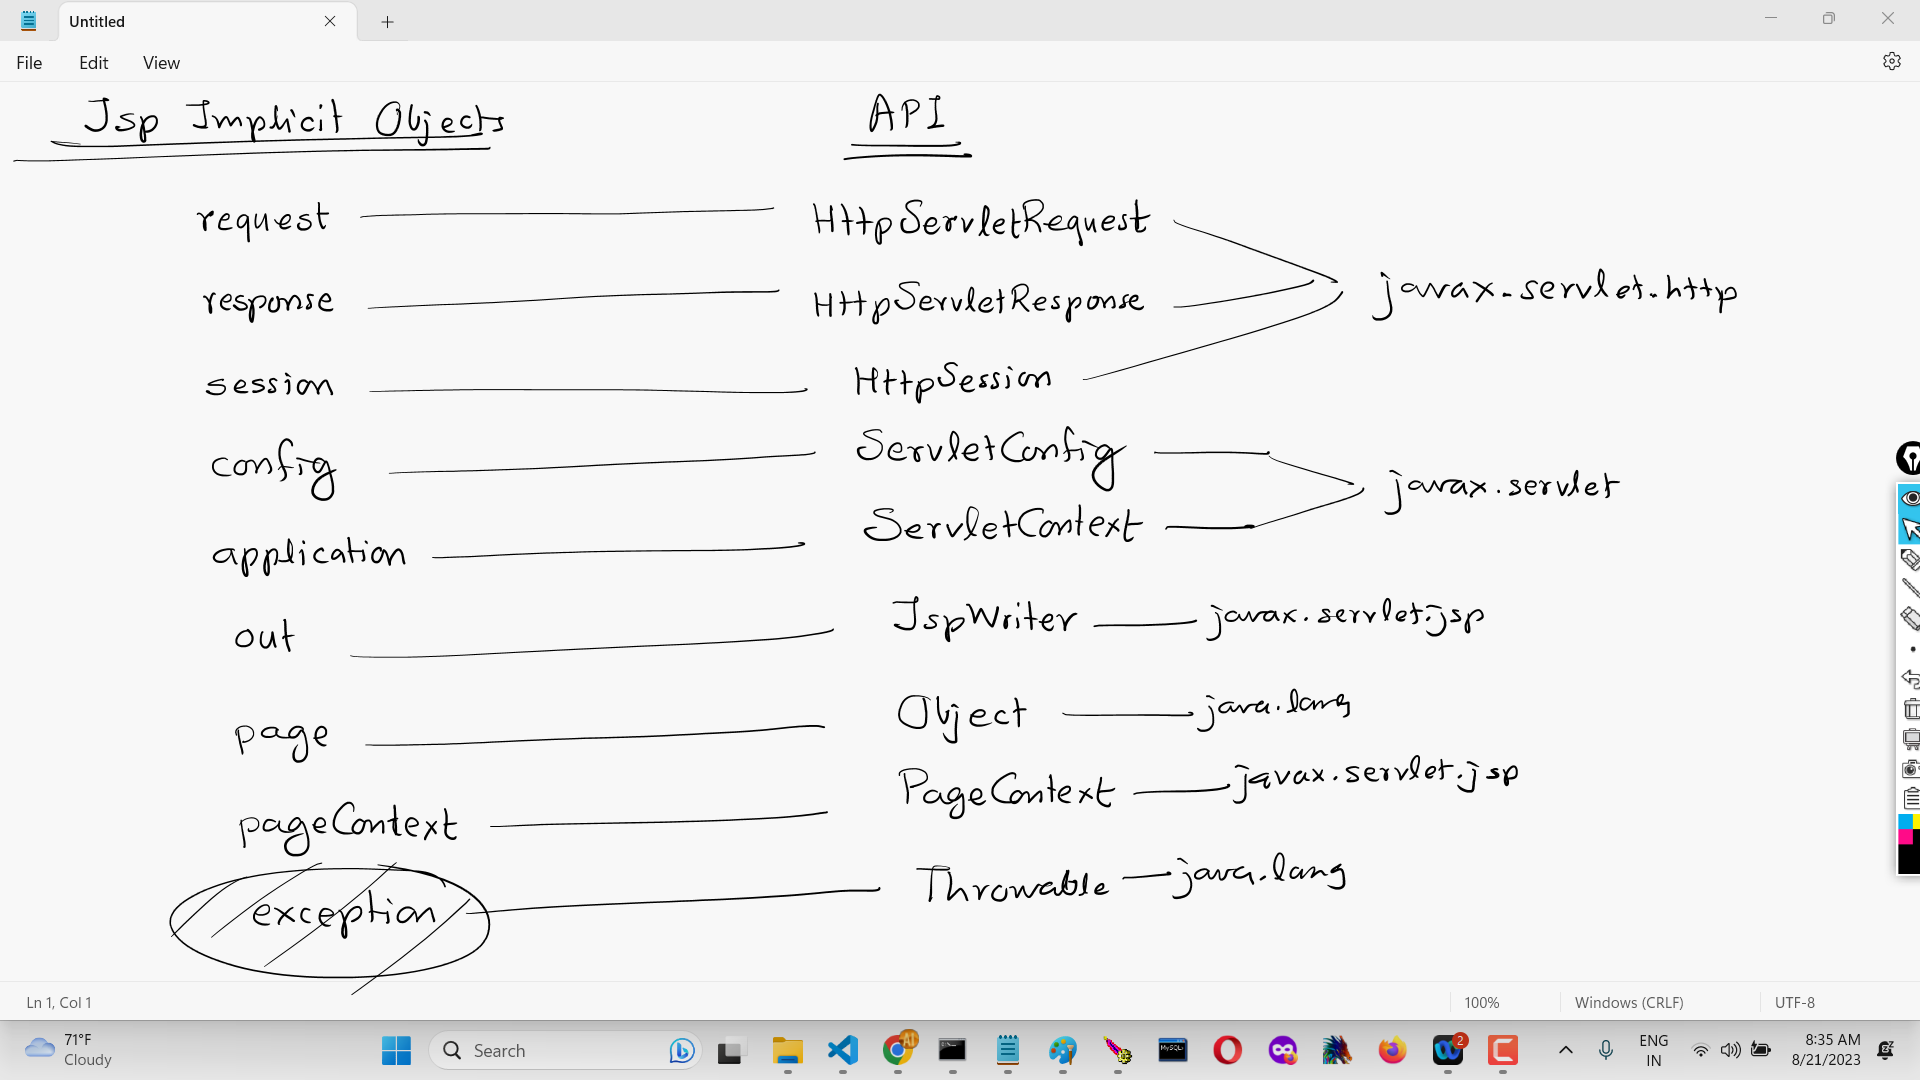 Untitled
File Edit View
Jsp Implicit Objects API
request HttpServletRequest
response HttpServletResponse javax.servlet.http
session HttpSession
config ServletConfig javax.servlet
application ServletContext
out JspWriter javax.servlet.jsp
page Object java.lang
pageContext PageContext javax.servlet.jsp
exception Throwable java.lang
Ln 1, Col 1 100% Windows (CRLF) UTF-8
71°F
Cloudy
Search
AI
MySQL
2
ENG
IN
8:35 AM
8/21/2023